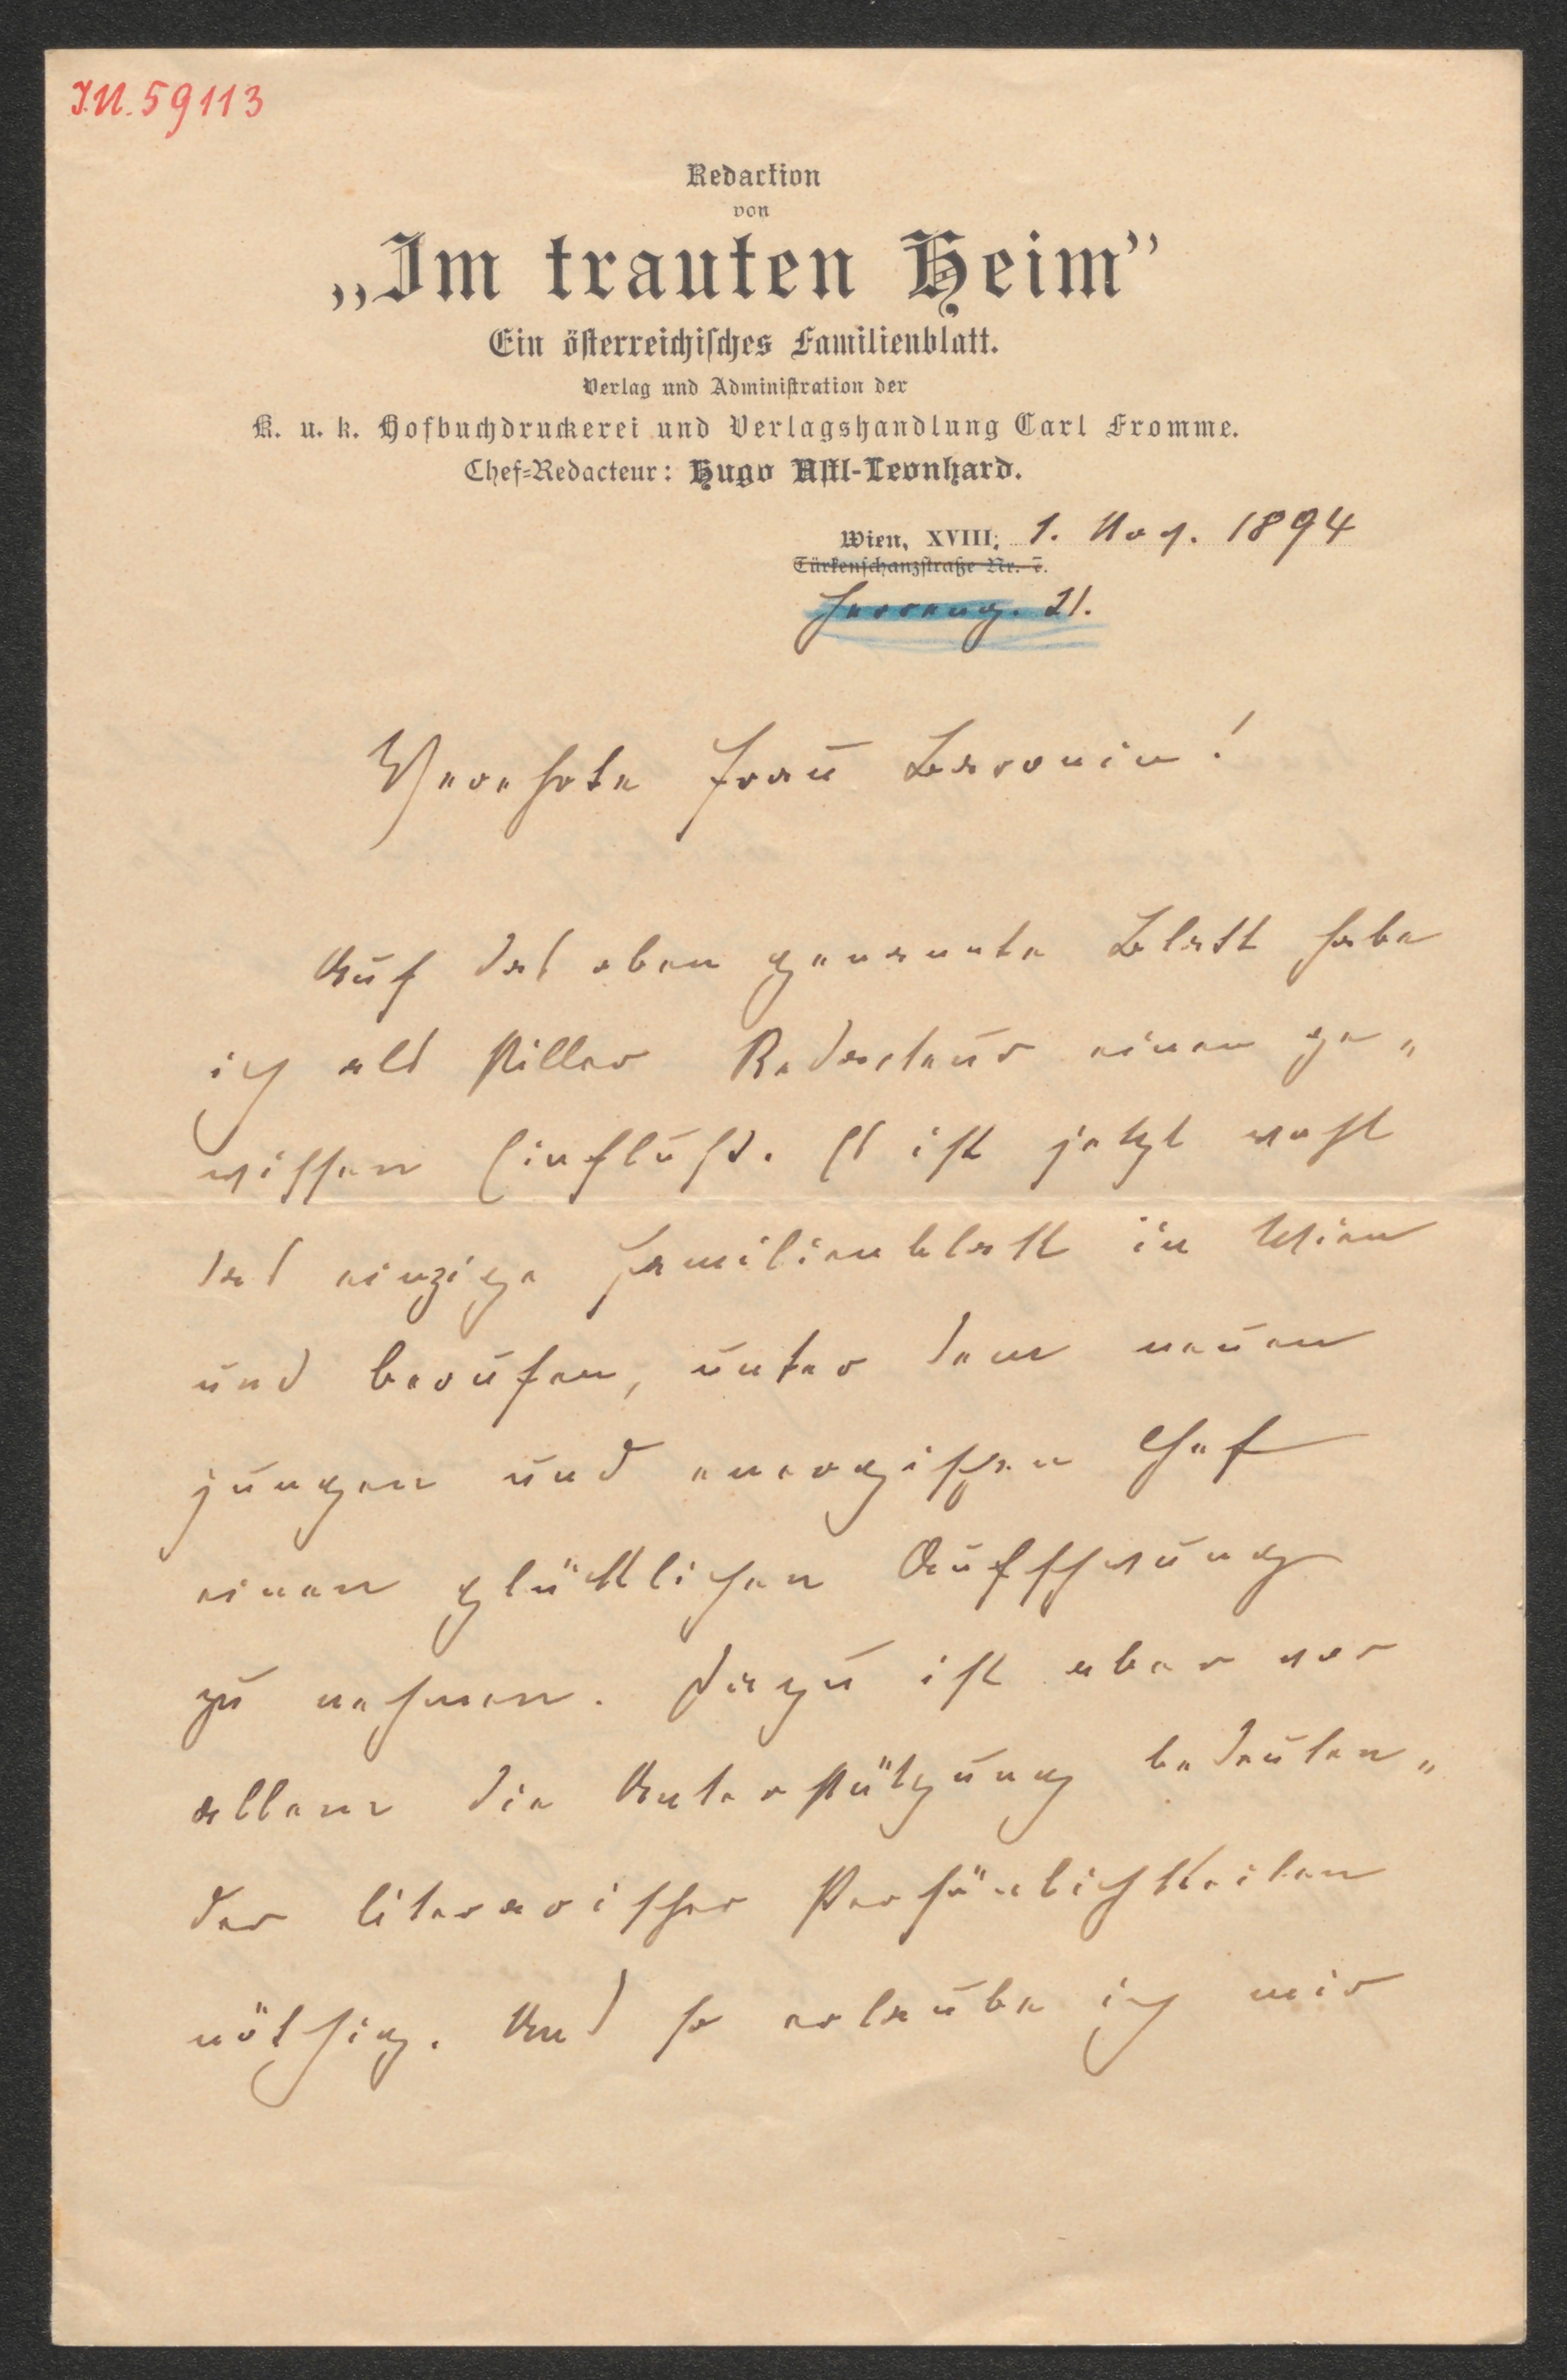 I.N. 59113
Redaction
von
„Im trauten Heim”
Ein österreichisches Familienblatt.
Verlag und Administration der
K. u. k. Hofbuchdruckerei und Verlagshandlung Carl Fromme.
Chef-Redacteur: Hugo Astl-Leonhard.
Wien, XVIII, 1. Nov. 1894
Türkenschanzstraße Nr. 7.
Herreng. 21.
Verehrte Frau Baronin!
Auf das oben genannte Blatt habe
ich als stiller Redacteur einen ge„
wissen Einfluß. Es ist jetzt wohl
das einzige Familienblatt in Wien
und berufen, unter dem neuen
jungen und energischen Chef
einen glücklichen Aufschwung
zu nehmen. Dazu ist aber vor
allem die Unterstützung bedeuten„
der literarischer Persönlichkeiten
nöthig. Und so erlaube ich mir